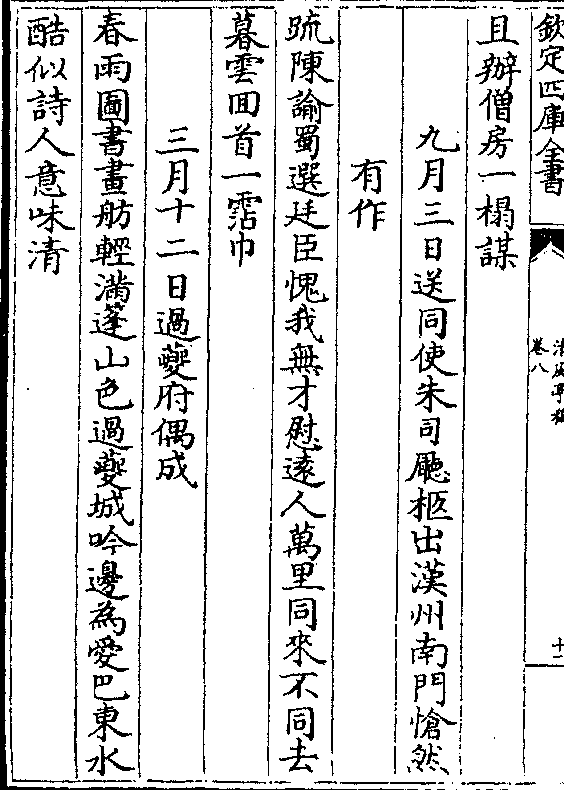 欽定四庫全書
清風亭稿
卷八
且辦僧房一榻謀
九月三日送同使朱司廳柩出漢州南門愴然
有作
䟽陳諭蜀選廷臣愧我無才慰逺人萬里同來不同去
暮雲囬首一霑巾
三月十二日過夔府偶成
春雨圖書畫舫輕滿蓬山色過夔城吟邊為愛巴東水
酷似詩人意味清